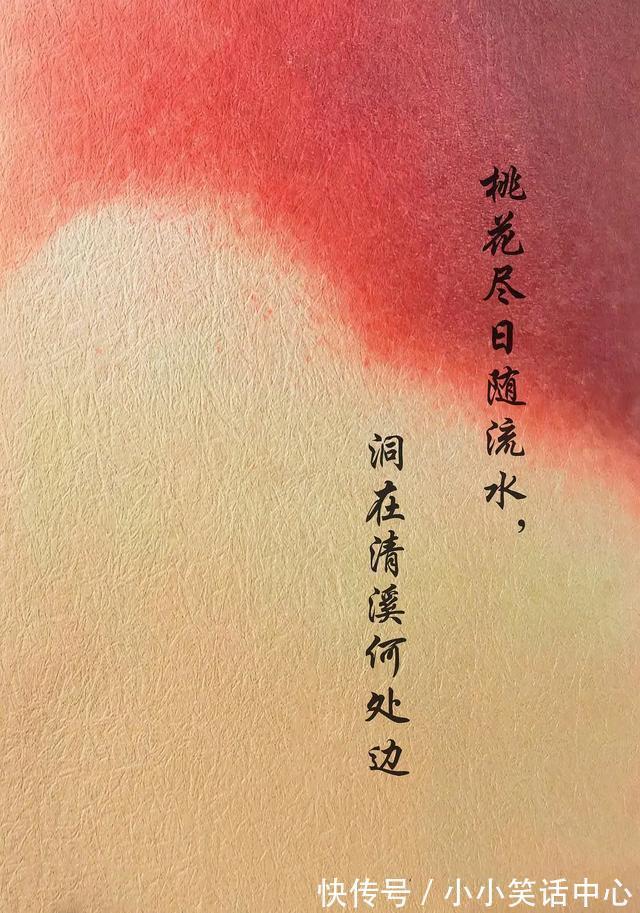 桃花尽日随流水，
洞在清溪何处边
快传号 / 小小笑话中心